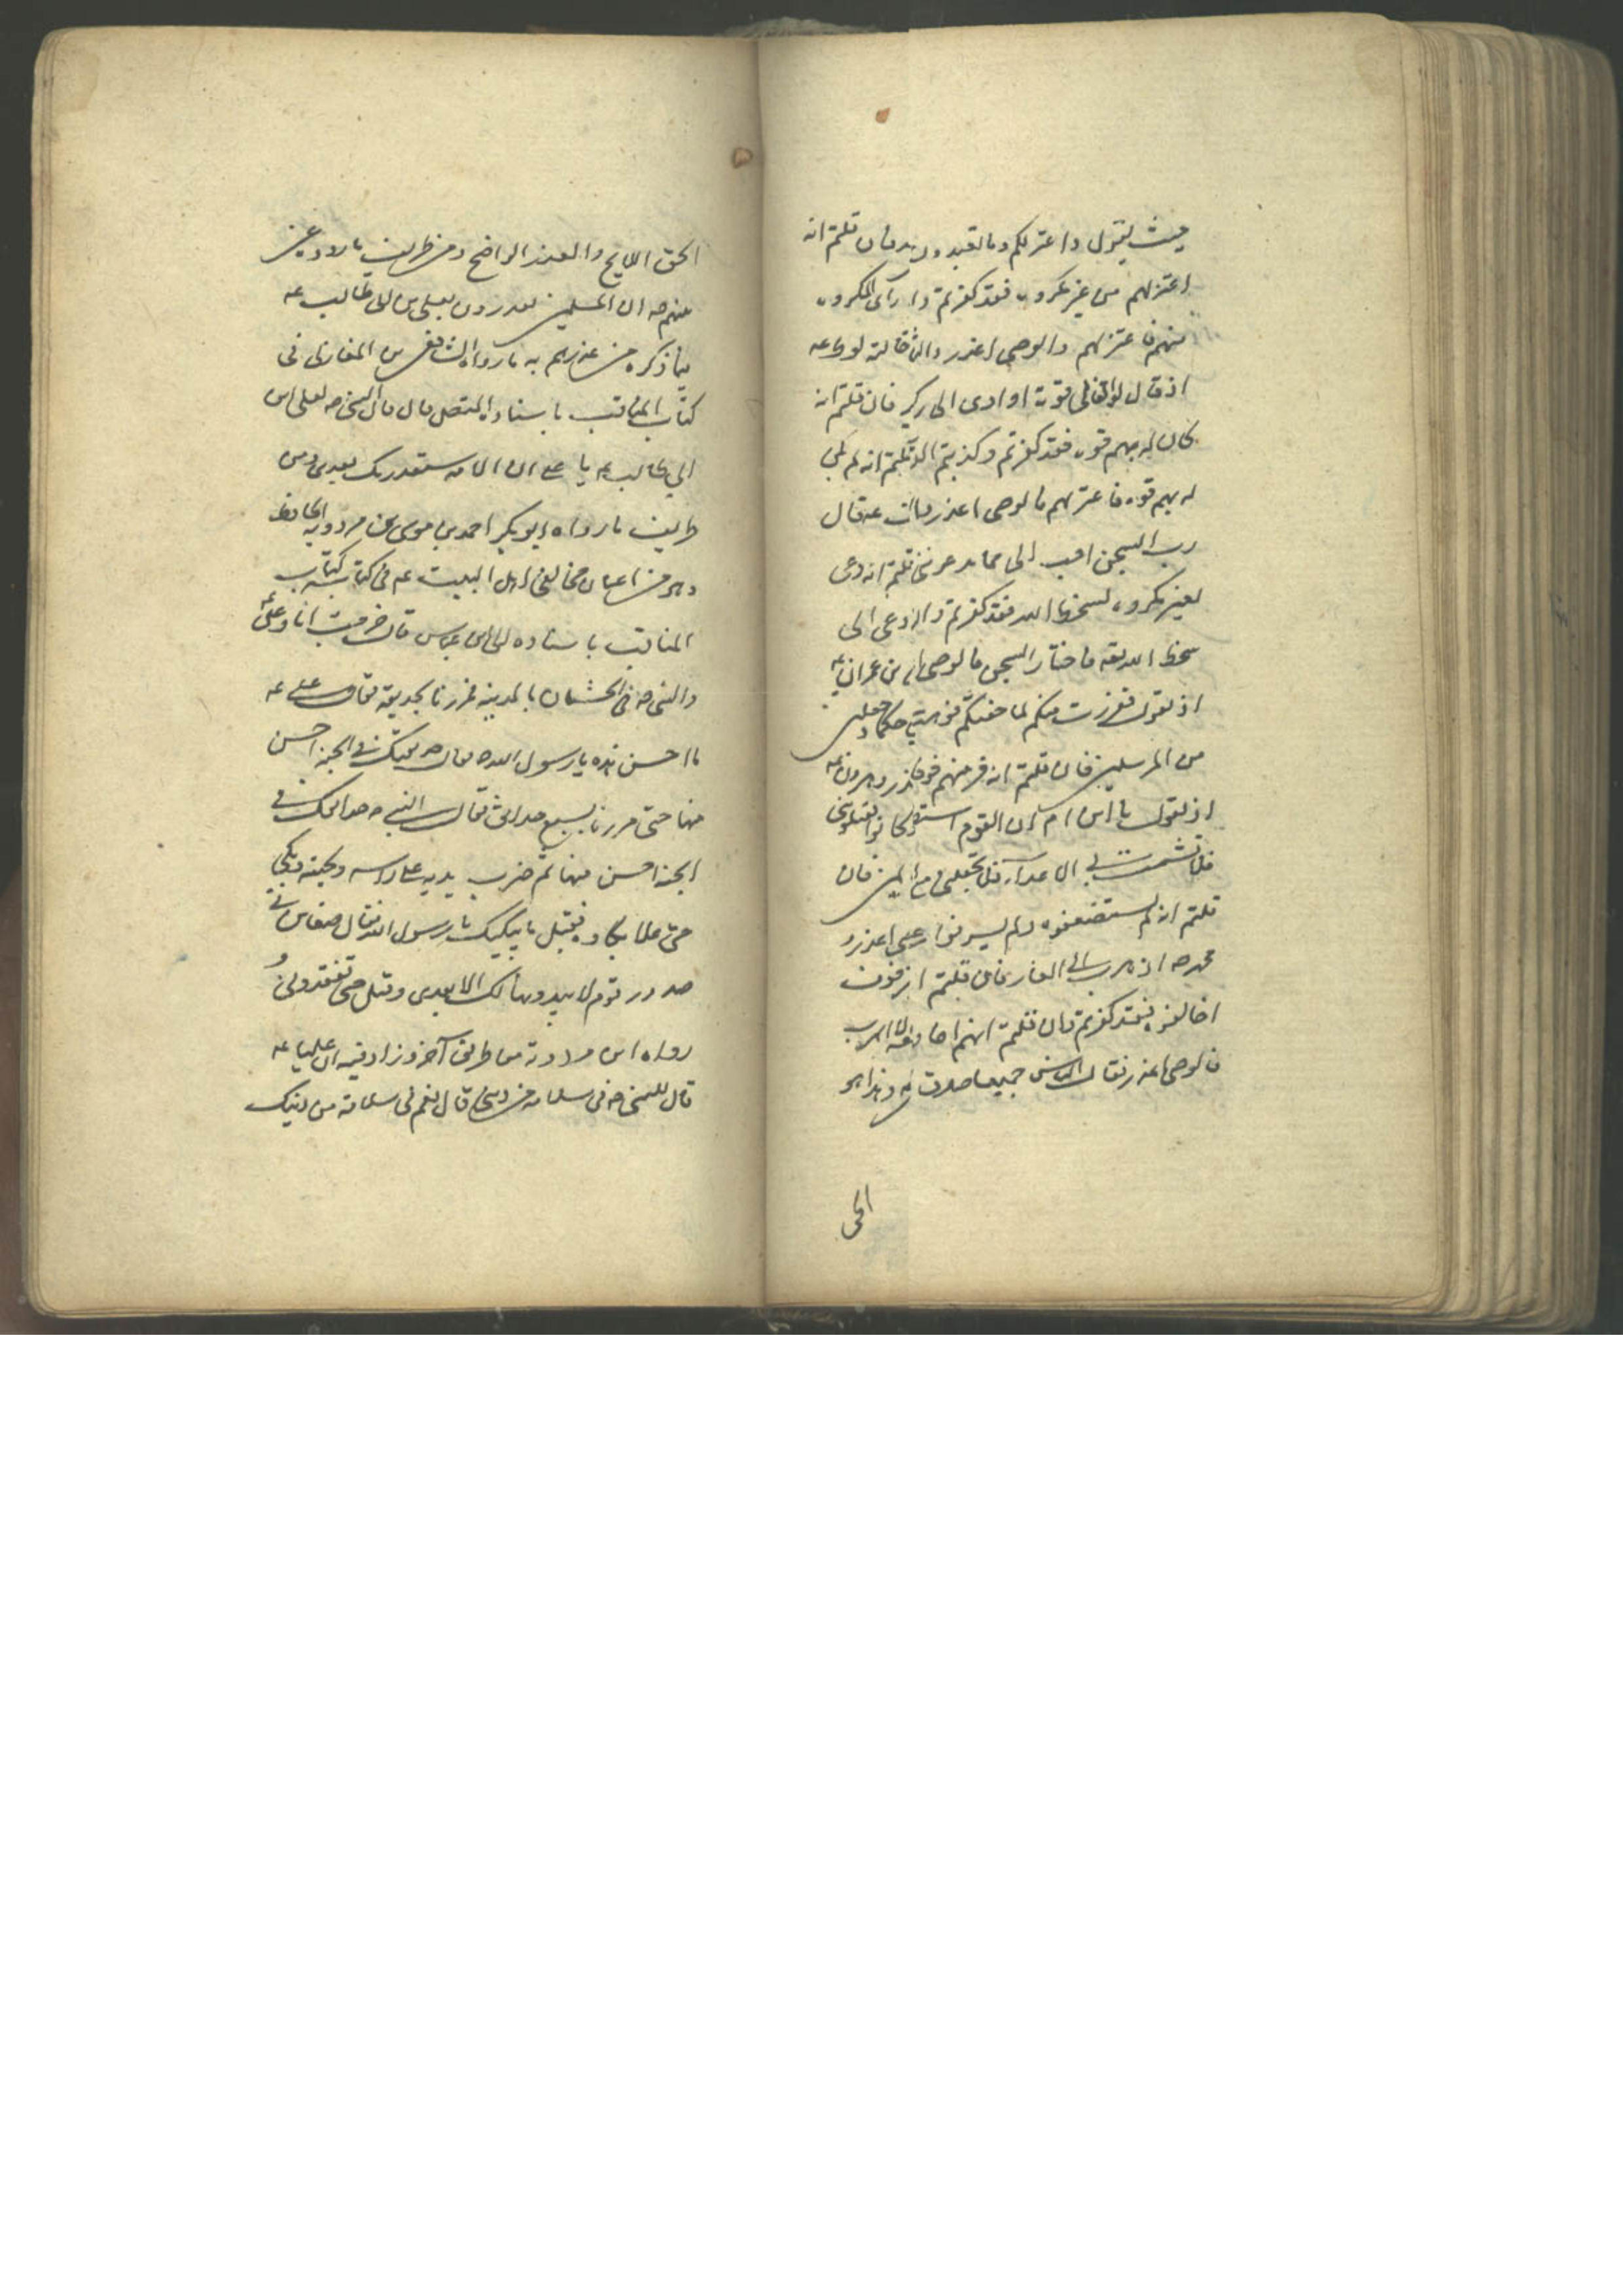 حيث يقول واعتزلكم وما تعبدون من دون الله فان قلتم انه
اعتزلهم من غير مكروه فقد كفرتم وان رأى المكروه
منهم فاعتزلهم فالوصي اعذر والثانية لوط عه
اذ قال لو ان لي بكم قوة او اوي الى ركن فان قلتم انه
كان له بهم قوة فقد كفرتم وكذبتم القران وان قلتم انه لم يكن
له بهم قوة فاعتزلهم فالوصي اعذر عه قال
رب السجن احب الى مما يدعونني فان قلتم انه دعي
لغير مكروه لسخط الله فقد كفرتم وان دعي الى
سخط الله تعه فاختار السجن فالوصي بن عمران عه
اذ يقول ففررت منكم لما خفتكم فوهب لي حكما وجعلني
من المرسلين فان قلتم انه فر منهم خوفا اعذر وهرون عه
اذ يقول يا ابن ام ان القوم استضعفوني وكادوا يقتلونني
فلا تشمت بي الاعداء ولا تجعلني مع الظالمين فان
قلتم انه لم يستضعفوه
محمد صه اذ هرب الى الغار فان قلتم انه من غير خوف
اخافوه فقد كفرتم وان قلتم انهم اخافوه الا الهرب
فالوصي اعذر فقال الناس جميعا صدقت وهذا هو
الحق
الحق اللايح والعذر الواضح ومن طريف ما رووه عن
نبيهم صه ان المسلمين يغدرون بعلي بن ابي طالب عه
بما ذكره من غدرهم به ما رواه الشافعي بن المغازلي في
كتاب المناقب باسناده المتصل قال قال النبي صه لعلي بن
ابي طالب عه يا علي ان الامة ستغدر بك بعدي ومن
طريف ما رواه ابو بكر احمد بن موسى بن مردويه الحافظ
وهو من اعيان مخالفي اهل البيت عه في كتابه كتاب
المناقب باسناده الى ابن عباس قال خرجت انا وعلي عه
والنبي صه في الحشان بالمدينه فمررنا بحديقة فقال علي عه
ما احسن هذه يا رسول الله فقال صه حديقتك في الجنه احسن
منها حتى مررنا بسبع حدائق فقال النبي صه حدائقك في
الجنه احسن منها ثم ضرب بيده على راسه ولحيته وبكى
حتى علا بكاوه فقيل ما يبكيك يا رسول الله فقال ضغاين في
صدور قوم لا يبدونها لك الا بعدي وقيل حتى تفقدوني و
رواه ابن مردويه من طريق آخر وزاد فيه ان عليا عه
قال للنبي صه في سلامه من ديني قال نعم في سلامة من دينك